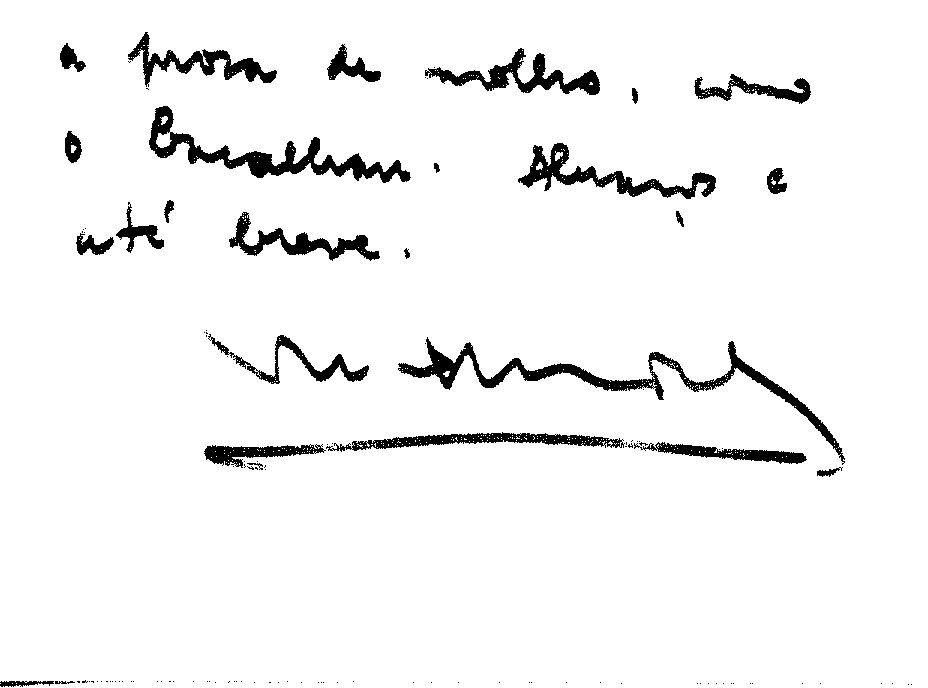 a prosa de molho, como
o bacalhau. Abraços e
até breve.